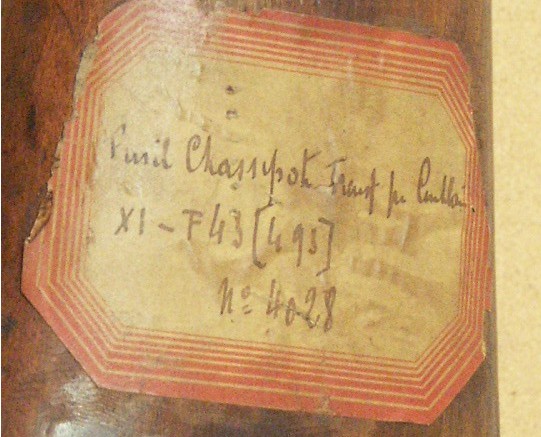 Fusil Chassepot Transf par
XI - F43 [495]
Nº 4028